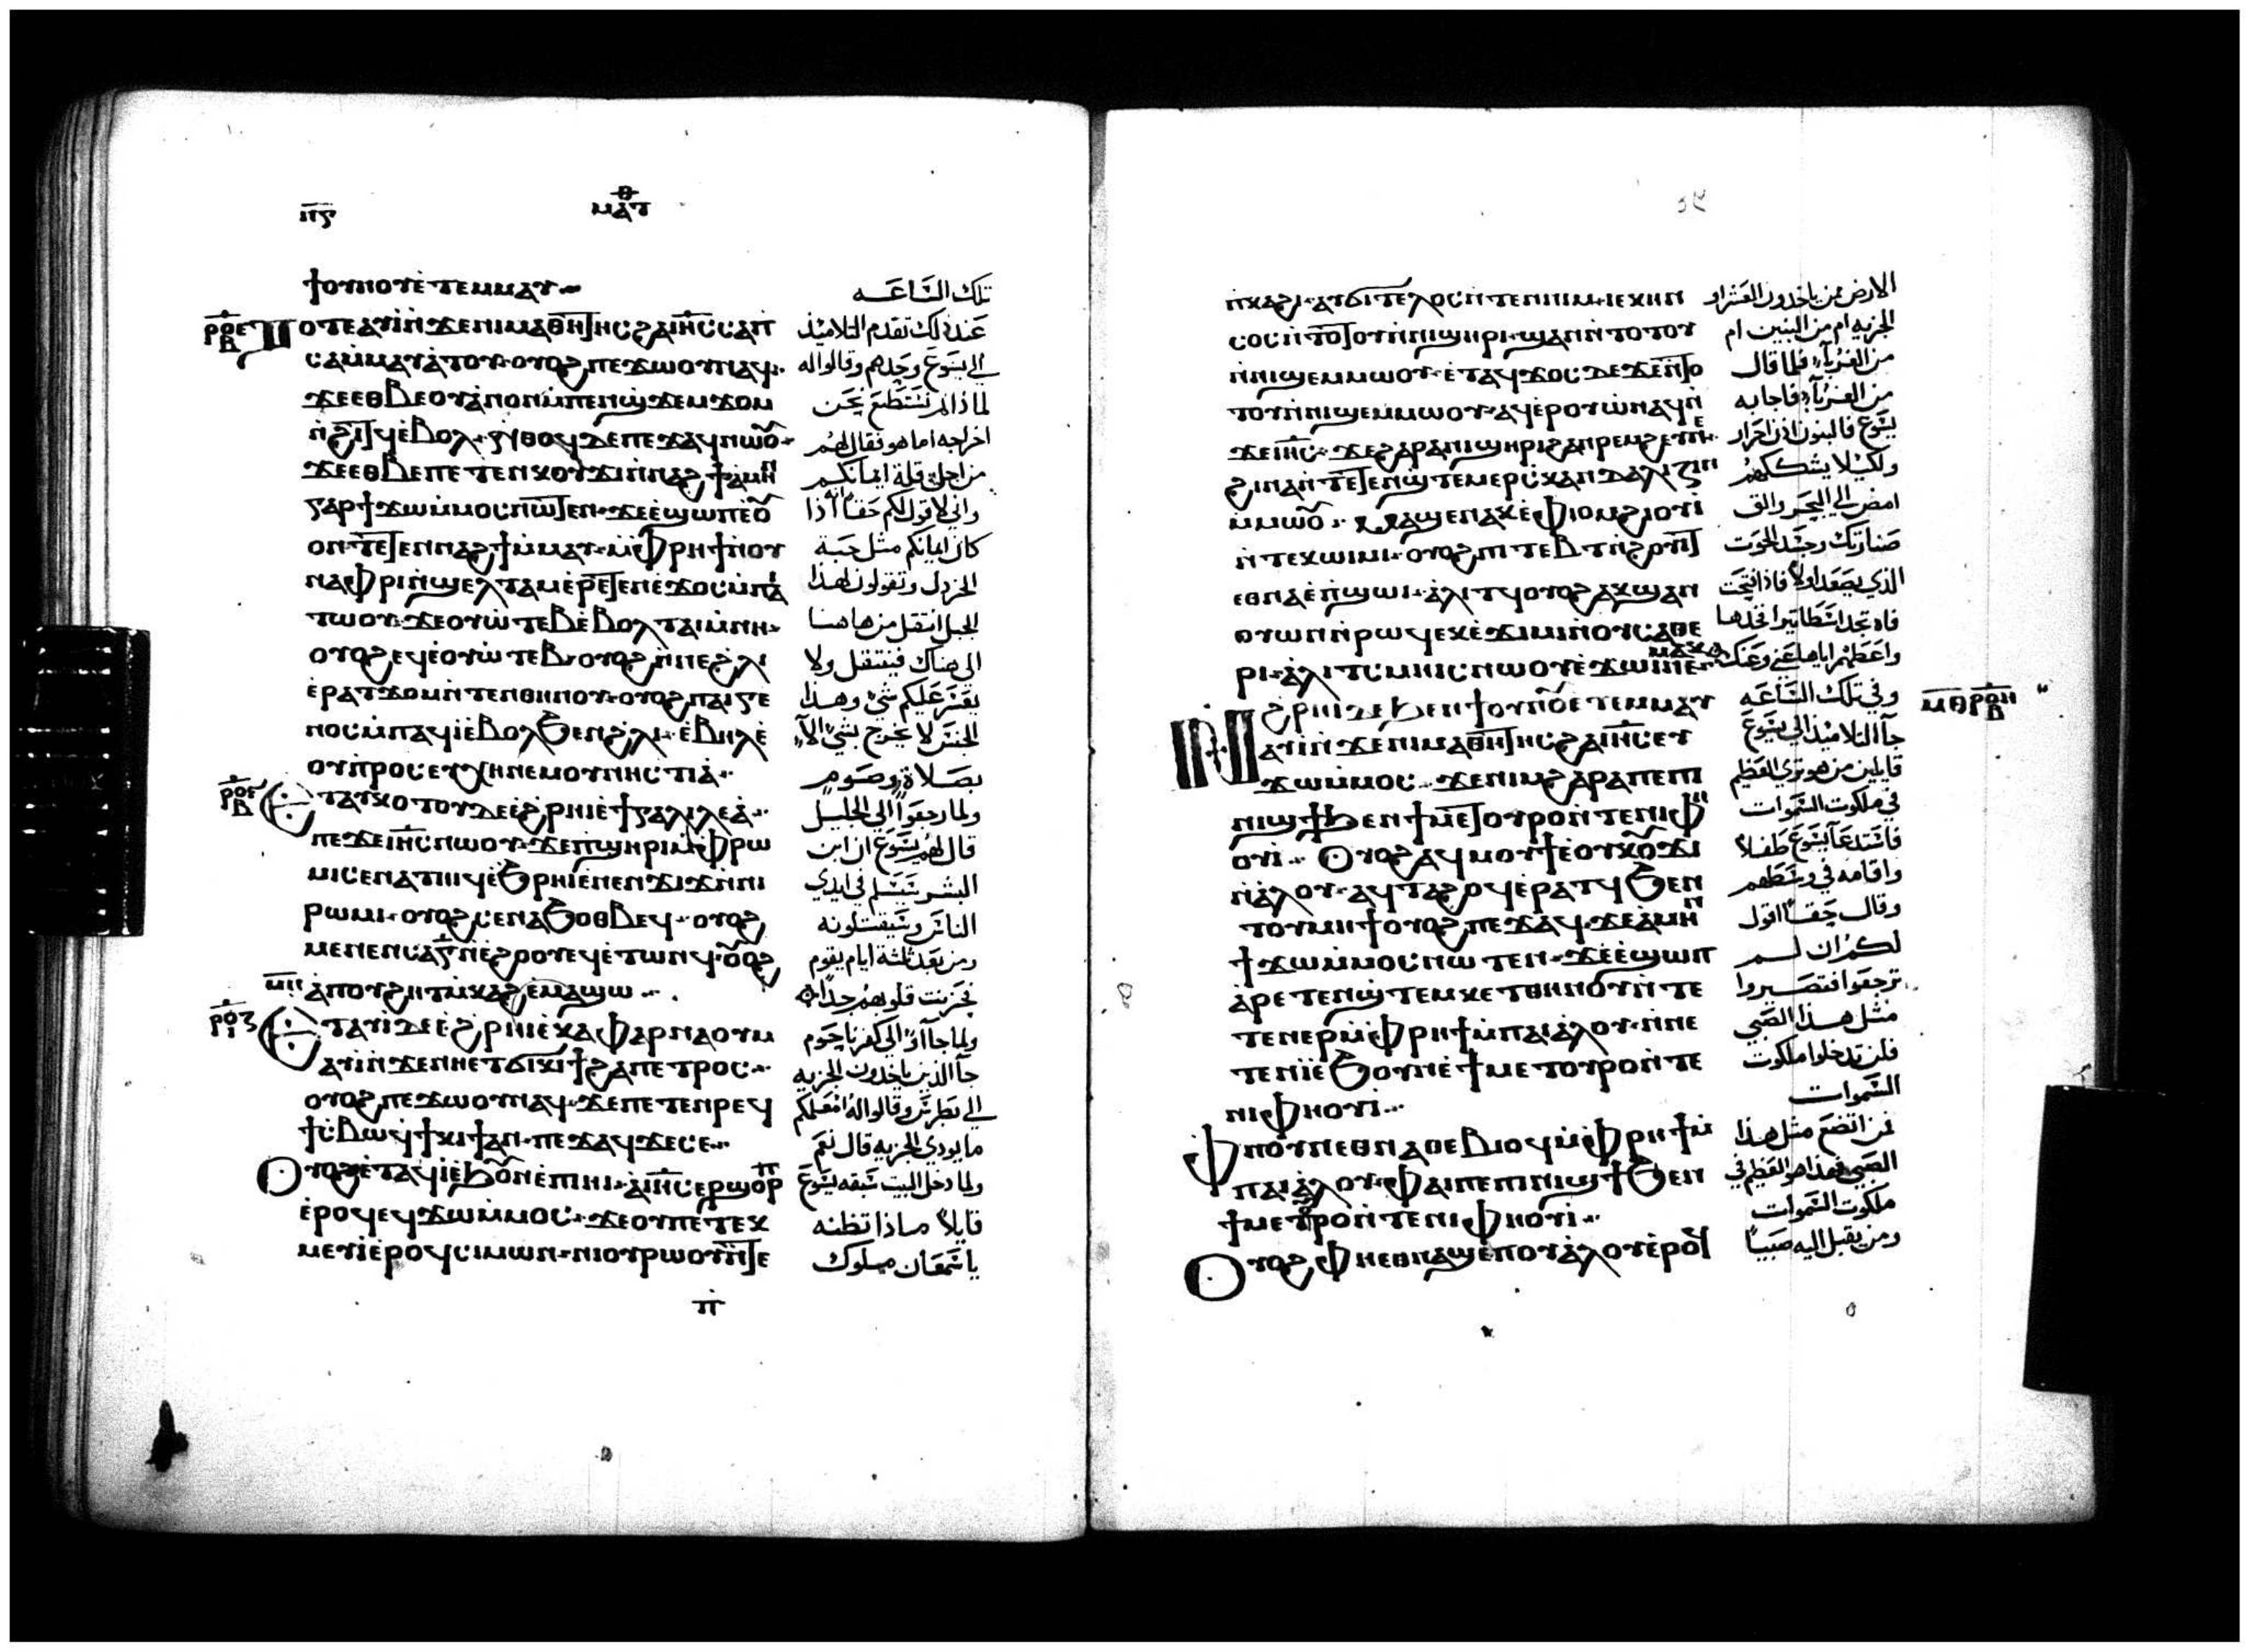 ⲡ̅ⲋ̅
ⲙⲁⲧ ⲑ
ϯⲟⲩⲛⲟⲩ ⲉ̀ⲧⲉⲙⲙⲁⲩ
ⲧⲟⲧⲉ ⲁⲩⲓ̀ ⲛ̀ϫⲉ ⲛⲓⲙⲁⲑⲏⲧⲏⲥ ϩⲁ ⲓⲏ̅ⲥ̅ ⲥⲁⲡ
ⲥⲁ ⲙ̀ⲙⲁⲩⲁ̀ⲧⲟⲩ ⲟⲩⲟϩ ⲡⲉϫⲱⲟⲩ ⲛⲁϥ
ϫⲉ ⲉⲑⲃⲉ ⲟⲩ ⲁ̀ⲛⲟⲛ ⲙ̀ⲡⲉⲛϣϫⲉⲙϫⲟⲙ
ⲛ̀ϩⲓⲧϥ ⲉ̀ⲃⲟⲗ ⲛ̀ⲑⲟϥ ⲇⲉ ⲡⲉϫⲁϥ ⲛⲱⲟ̅
ϫⲉ ⲉⲑⲃⲉ ⲡⲉⲧⲉⲛⲕⲟⲩϫⲓ ⲛ̀ⲛⲁϩϯ ⲁ̀ⲙⲏⲛ
ⲅⲁⲣ ϯϫⲱ ⲙ̀ⲙⲟⲥ ⲛⲱⲧⲉⲛ ϫⲉ ⲉ̀ϣⲱⲡ ⲉⲟ̅
ⲟⲛⲧⲉⲧⲉⲛ ⲛⲁϩϯ ⲙ̀ⲙⲁⲩ ⲙ̀ⲫⲣⲏϯ ⲛ̀ⲟⲩ
ⲛⲁⲫⲣⲓ ⲛ̀ϣⲉⲗⲧⲁⲙ ⲉ̀ⲣⲉⲧⲉⲛⲉ̀ϫⲟⲥ ⲙ̀ⲡⲁⲓ
ⲧⲱⲟⲩ ϫⲉ ⲟⲩⲱ̀ⲧⲉⲃ ⲉ̀ⲃⲟⲗ ⲧⲁⲓ ⲙ̀ⲛⲏ
ⲟⲩⲟϩ ⲉϥⲉ̀ⲟⲩⲱ̀ⲧⲉⲃ ⲟⲩⲟϩ ⲛ̀ⲛⲉϩⲗⲓ
ⲉ̀ⲣⲁⲧϫⲟⲙ ⲛ̀ⲧⲉⲛ ⲑⲏⲛⲟⲩ ⲟⲩⲟϩ ⲡⲁⲓⲅⲉ
ⲛⲟⲥ ⲙ̀ⲡⲁϥⲓ̀ ⲉ̀ⲃⲟⲗ ϧⲉⲛ ϩⲗⲓ ⲉ̀ⲃⲏⲗ ⲉ̀
ⲟⲩⲡⲣⲟⲥⲉⲩⲭⲏ ⲛⲉⲙ ⲟⲩⲛⲏⲥⲧⲓⲁ̀
ⲉⲧⲁⲩⲕⲟⲧⲟⲩ ⲇⲉ ⲉ̀ϩⲣⲏⲓ ⲉ̀ ϯⲅⲁⲗⲓⲗⲉⲁ̀
ⲡⲉϫⲉ ⲓⲏ̅ⲥ̅ ⲛⲱⲟⲩ ϫⲉ ⲡϣⲏⲣⲓ ⲙ̀ⲫⲣⲱ
ⲙⲓ ⲥⲉⲛⲁⲧⲏⲓϥ ⲉ̀ϧⲣⲏⲓ ⲉ̀ⲛⲉⲛϫⲓϫ ⲛ̀ⲛⲓ
ⲣⲱⲙⲓ ⲟⲩⲟϩ ⲥⲉⲛⲁϧⲟⲑⲃⲉϥ ⲟⲩⲟϩ
ⲙⲉⲛⲉⲛⲥⲁ ⲅ̅ ⲛ̀ⲉ̀ϩⲟⲟⲩ ⲉϥⲉ̀ⲧⲱⲛϥ ⲟ̅ⲟϩ
ⲁ̀ⲡⲟⲩϩⲏⲧ ⲙ̀ⲕⲁϩ ⲉ̀ⲙⲁϣⲱ
ⲉⲧⲁⲩⲓ̀ ⲇⲉ ⲉ̀ϩⲣⲏⲓ ⲉ̀ⲕⲁⲫⲁⲣⲛⲁⲟⲩⲙ
ⲁⲩⲓ̀ ⲛ̀ϫⲉ ⲛⲏⲉⲧϭⲓⲕⲓϯ ϩⲁ ⲡⲉⲧⲣⲟⲥ
ⲟⲩⲟϩ ⲡⲉϫⲱⲟⲩ ⲛⲁϥ ϫⲉ ⲡⲉⲧⲉⲛⲣⲉϥ
ϯⲥ̀ⲃⲱ ϥ̀ϯⲕⲓϯ ⲁⲛ ⲡⲉϫⲁϥ ϫⲉ ⲥⲉ
ⲟⲩⲟϩ ⲉ̀ⲧⲁϥⲓ̀ ⲉ̀ϧⲟ̅ⲛ ⲉ̀ⲡⲏⲓ ⲁ̀ ⲓⲏ̅ⲥ̅ ⲉⲣϣⲟⲣⲡ
ⲉ̀ⲣⲟϥ ⲉϥϫⲱ ⲙ̀ⲙⲟⲥ ϫⲉ ⲟⲩ ⲡⲉⲧⲉⲕ
ⲙⲉⲩⲓ̀ ⲉ̀ⲣⲟϥ ⲥⲓⲙⲱⲛ ⲛⲓⲟⲩⲣⲱⲟⲩ ⲛ̀ⲧⲉ
تلك الساعه
عند ذلك تقدم التلاميذ
الي يسوع وحدهم وقالوا له
لماذا لم نستطع نحن
اخراجه اما هو فقال لهم
من اجل قلة ايمانكم
واني لاقول لكم حقا انه اذا
كان ايمانكم مثل حبة
الخردل وتقولون لهذا
الجبل انتقل من هاهنا
الى هناك فينتقل ولا
يعسر عليكم شي وهذا
الجنس لا يخرج بشي الا
بصلاة وصوم
ولما رجعوا الي الجليل
قال لهم يسوع ان ابن
البشر سيسلم في ايدي
الناس وسيقتلونه
ومن بعد ثلثة ايام يقوم
فحزنت قلوبهم جدا
ولما جآاوا الي كفرناحوم
جآ الذين ياخدون الجزيه
الي بطرس وقالوا له امعلمكم
ما يودي الجزيه قال نعم
ولما دخل البيت سبقه يسوع
قايلا ماذا تظنه
يا سمعان ملوك
ⲛ̀ⲕⲁϩⲓ ⲁⲩϭⲓⲧⲉⲗⲟⲥ ⲛ̀ⲧⲉⲛ ⲛⲓⲙ ⲓⲉ ⲕⲏⲛ
ⲥⲟⲥ ⲛ̀ⲧⲟⲧⲟⲩ ⲛ̀ⲛⲓϣⲏⲣⲓ ϣⲁⲛ ⲛ̀ⲧⲟⲧⲟⲩ
ⲛ̀ⲛⲓϣⲉⲙⲙⲱⲟⲩ ⲉ̀ⲧⲁϥϫⲟⲥ ⲇⲉ ϫⲉ ⲛ̀ⲧⲟ
ⲧⲟⲩ ⲛ̀ⲛⲓϣⲉⲙⲙⲱⲟⲩ ⲁϥⲉⲣⲟⲩⲱ̀ ⲛⲁϥ ⲛ̀
ϫⲉ ⲓⲏ̅ⲥ̅ ϫⲉ ϩⲁⲣⲁ ⲛⲓϣⲏⲣⲓ ϩⲁⲛⲣⲉⲙϩⲉⲩ ⲛⲉ
ϩⲓⲛⲁ ⲛ̀ⲧⲉⲛϣ̀ⲧⲉⲙⲉⲣⲥ̀ⲕⲁⲛⲇⲁⲗⲓⲍⲓⲛ
ⲙ̀ⲙⲱⲟ̅ ⲙⲁϣⲉⲛⲁⲕ ⲉ̀ⲫⲓⲟⲙ ϩⲓⲟⲩⲓ̀
ⲛ̀ⲧⲉⲕⲱⲓⲙⲓ ⲟⲩⲟϩ ⲡⲓⲧⲉⲃⲧ ⲛ̀ϩⲟⲩⲓⲧ
ⲉⲑⲛⲁⲉ̀ⲡϣⲱⲓ ⲁ̀ⲗⲓⲧϥ ⲟⲩⲟϩ ⲁⲕϣⲁⲛ
ⲟⲩⲱⲛ ⲛ̀ⲣⲱϥ ⲉⲕⲉ̀ϫⲓⲙⲓ ⲛ̀ⲟⲩⲥⲁⲑⲉ
ⲣⲓ ⲁ̀ⲗⲓⲧⲥ ⲙⲏⲓⲥ ⲛⲱⲟⲩ ⲉ̀ϫⲱⲓ ⲛⲉⲙⲁⲕ
ⲛ̀ϩⲣⲏⲓ ⲇⲉ ϧⲉⲛ ϯⲟⲩⲛⲟ̅ ⲉⲧⲉⲙⲙⲁⲩ
ⲁⲩⲓ̀ ⲛ̀ϫⲉ ⲛⲓⲙⲁⲑⲏⲧⲏⲥ ϩⲁ ⲓⲏ̅ⲥ̅ ⲉⲩ
ϫⲱ ⲙ̀ⲙⲟⲥ ϫⲉ ⲛⲓⲙ ϩⲁⲣⲁ ⲡⲉ ⲡⲓ
ⲛⲓϣϯ ϧⲉⲛ ϯⲙⲉⲧⲟⲩⲣⲟ ⲛ̀ⲧⲉ ⲛⲓⲫⲏ
ⲟⲩⲓ̀ ⲟⲩⲟϩ ⲁϥⲙⲟⲩϯ ⲉ̀ⲟⲩⲕⲟ̅ϫⲓ
ⲛ̀ⲁ̀ⲗⲟⲩ ⲁϥⲧⲁϩⲟϥ ⲉ̀ⲣⲁⲧϥ ϧⲉⲛ
ⲧⲟⲩⲙⲏϯ ⲟⲩⲟϩ ⲡⲉϫⲁϥ ϫⲉ ⲁ̀ⲙⲏⲛ
ϯϫⲱ ⲙ̀ⲙⲟⲥ ⲛⲱⲧⲉⲛ ϫⲉ ⲉ̀ϣⲱⲡ
ⲁ̀ⲣⲉⲧⲉⲛϣ̀ⲧⲉⲙⲕⲉⲧ ⲑⲏⲛⲟⲩ ⲛ̀ⲧⲉ
ⲧⲉⲛⲉⲣ ⲙ̀ⲫⲣⲏϯ ⲙ̀ⲡⲁⲓⲁ̀ⲗⲟⲩ ⲛ̀ⲛⲉ
ⲧⲉⲛⲓ̀ ⲉ̀ϧⲟⲩⲛ ⲉ̀ ϯⲙⲉⲧⲟⲩⲣⲟ ⲛ̀ⲧⲉ
ⲛⲓⲫⲏⲟⲩⲓ̀
ⲫⲏ ⲟⲩⲛ ⲉⲑⲛⲁⲑⲉⲃⲓⲟϥ ⲙ̀ⲫⲣⲏϯ ⲙ̀
ⲡⲁⲓⲁ̀ⲗⲟⲩ ⲫⲁⲓ ⲡⲉ ⲡⲓⲛⲓϣϯ ϧⲉⲛ
ϯⲙⲉⲧⲟⲩⲣⲟ ⲛ̀ⲧⲉ ⲛⲓⲫⲏⲟⲩⲓ̀
ⲟⲩⲟϩ ⲫⲏ ⲉⲑⲛⲁϣⲉⲡ ⲟⲩⲁ̀ⲗⲟⲩ ⲉ̀ⲣⲟϥ
الارض ممن ياخدون العشر او
الجزيه ام من البنين ام
من الغربآ فلما قال
من الغربآ فاجابه
يسوع فالبنون اذن احرار
ولكيلا يشككهم
امض الي البحر والق
صنارتك وجسد الحوت
الذي يصعد اولا فاذا فتحت
فاه تجد استطاتيرا فخدها
واعطهم اياها عني وعنك
وفي تلك الساعه
جآ التلاميذ الي يسوع
قايلين من هو تري العظيم
في ملكوت السموات
فاستدعآ يسوع طفلا
واقامه في وسطهم
وقال حقا اقول
لكم ان لم
ترجعوا فتصيروا
مثل هذا الصبي
فلن تدخلوا ملكوت
السموات
فمن اتضع مثل هذا
الصبي فهذا هو العظيم في
ملكوت السموات
ومن يقبل اليه صبيا